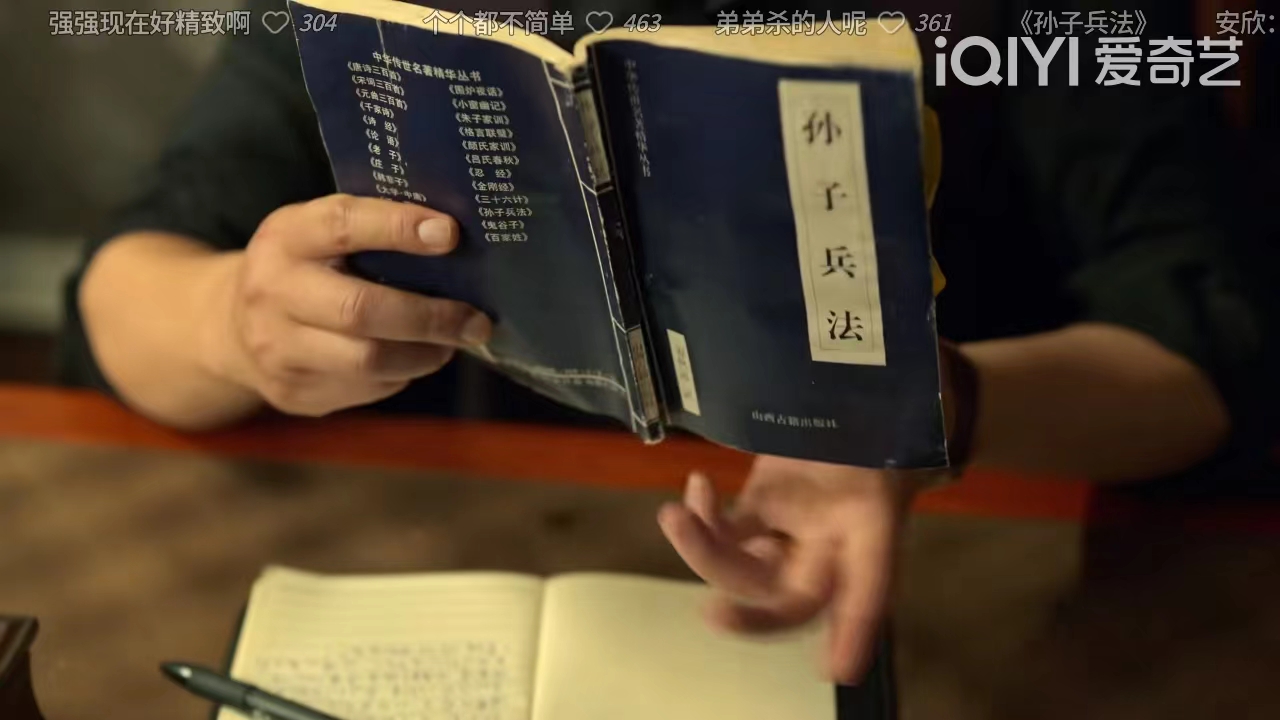 强强现在好精致啊 304
个个都不简单 463
弟弟杀的人呢 361
《孙子兵法》
安欣:
iQIYI 爱奇艺
中华传世名著精华丛书
《唐诗三百首》
《宋词三百首》
《元曲三百首》
《千家诗》
《诗 经》
《论 语》
《老 子》
《庄 子》
《韩非子》
《围炉夜话》
《小窗幽记》
《朱子家训》
《格言联璧》
《颜氏家训》
《吕氏春秋》
《忍 经》
《金刚经》
《三十六计》
《孙子兵法》
《鬼谷子》
《百家姓》
中华传世名著精华丛书
孙子兵法
山西古籍出版社